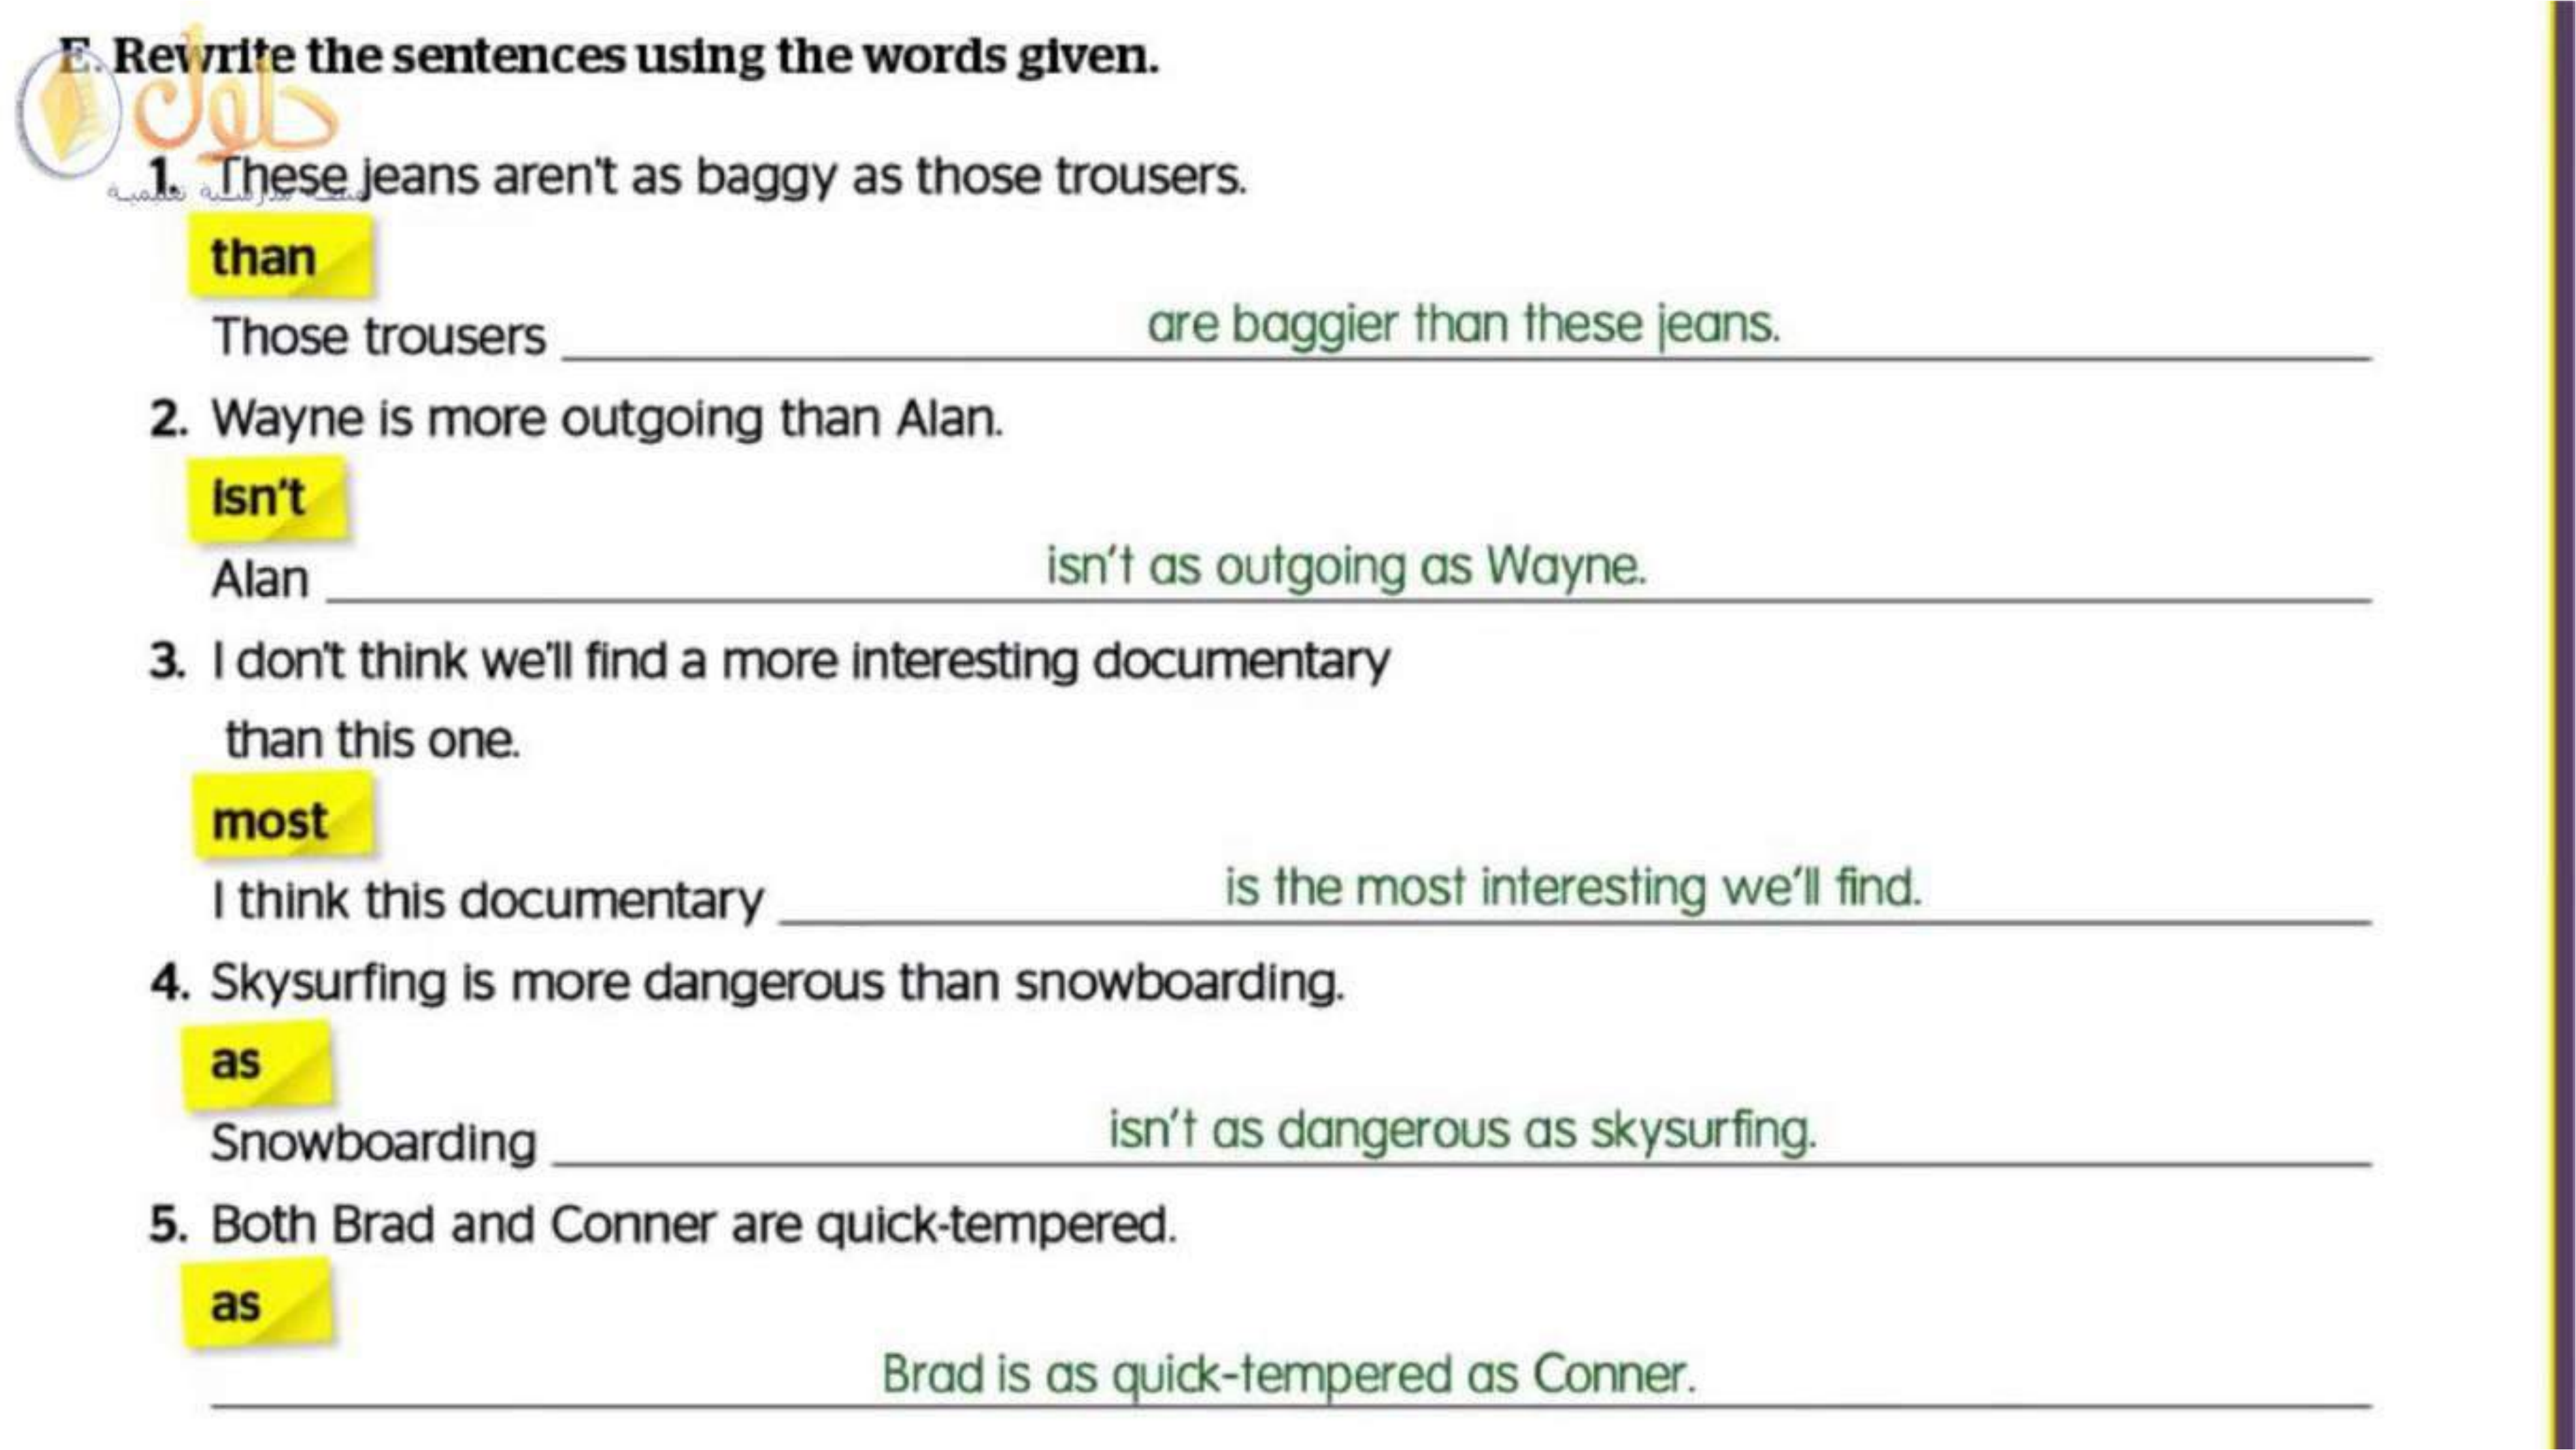 E. Rewrite the sentences using the words given.
حلول
1. These jeans aren't as baggy as those trousers.
than
Those trousers are baggier than these jeans.
2. Wayne is more outgoing than Alan.
isn't
Alan isn't as outgoing as Wayne.
3. I don't think we'll find a more interesting documentary
than this one.
most
I think this documentary is the most interesting we'll find.
4. Skysurfing is more dangerous than snowboarding.
as
Snowboarding isn't as dangerous as skysurfing.
5. Both Brad and Conner are quick-tempered.
as
Brad is as quick-tempered as Conner.